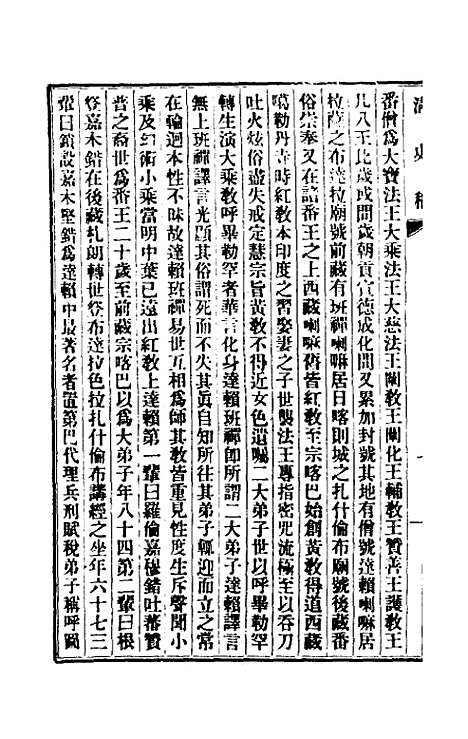 清史稿
番僧爲大寶法王大乘法王大慈法王闡教王闡化王輔教王贊善王護教王
凡八王比歲或間歲朝貢宣德成化間又累加封號其地有僧號達賴喇嘛居
拉薩之布達拉廟號前藏有班禪喇嘛居日喀則城之扎什倫布廟號後藏番
俗崇奉又在諸番王之上西藏喇嘛舊皆紅教至宗喀巴始創黃教得道西藏
噶勒丹寺時紅教本印度之習娶妻之子世襲法王專指密咒流極至以吞刀
吐火炫俗盡失戒定慧宗旨黃教不得近女色遺囑二大弟子世以呼畢勒罕
轉生演大乘教呼畢勒罕者華言化身達賴班禪卽所謂二大弟子達賴譯言
無上班禪譯言光顯其俗謂死而不失其眞自知所往其弟子輒迎而立之常
在輪迴本性不昧故達賴班禪易世互相爲師其教皆重見性度生斥聲聞小
乘及幻術小乘當明中葉已遠出紅教上達賴第一輩曰羅倫嘉穆錯吐蕃贊
普之裔世爲番王二十歲至前藏宗喀巴以爲大弟子年八十四第二輩曰根
登嘉木錯在後藏札朗轉世登布達拉色拉扎什倫布講經之坐年六十七三
輩曰鎖諾嘉木堅錯爲達賴中最著名者置第巴代理兵刑賦稅弟子稱呼圖